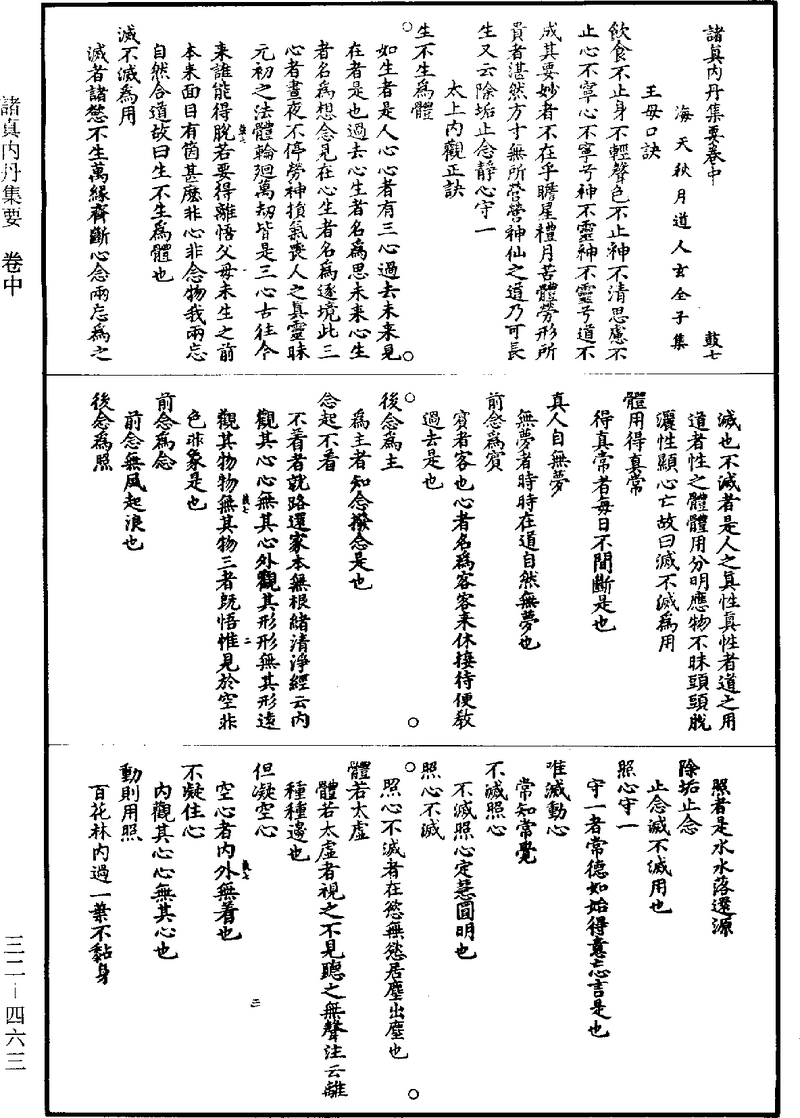 諸真內丹集要卷中　鼓七
海天秋月道人玄全子集
王母口訣
飲食不止身不輕聲色不止神不清思慮不
止心不寧心不寧兮神不靈神不靈兮道不
成其要妙者不在乎瞻星禮月苦體勞形所
貴者湛然方寸無所營營神仙之道乃可長
生又云除垢止念靜心守一
太上內觀正訣
生不生爲體
如生者是人心心者有三心過去未來見
在者是也過去心生者名爲思未來心生
者名爲想念見在心生者名爲逐境此三
心者晝夜不停勞神損氣喪人之真靈昧
元初之法體輪迴萬劫皆是三心古往今
来誰能得脫若要得離悟父母未生之前
本来面目有箇甚麽非心非念物我兩忘
自然合道故曰生不生爲體也
滅不滅爲用
滅者諸慾不生萬緣齊斷心念兩忘爲之
滅也不滅者是人之真性真性者道之用
道者性之體體用分明應物不昧頭頭脫
灑性顯心亡故曰滅不滅爲用
體用得真常
得真常者每日不間斷是也
真人自無夢
無夢者時時在道自然無夢也
前念爲賓
賓者客也心者名爲客客来休接待便教
過去是也
後念爲主
爲主者知念撥念是也
念起不着
不着者就路還家本無根緒清淨經云內
觀其心心無其心外觀其形形無其形遠
觀其物物無其物三者旣悟惟見於空非
色非象是也
前念爲念
前念無風起浪也
後念爲照
照者是水水落還源
除垢止念
止念滅不滅用也
照心守一
守一者常德如始得意忘言是也
唯滅動心
常知常覺
不滅照心
不滅照心定慧圓明也
照心不滅
照心不滅者在慾無慾居塵出塵也
體若太虛
體若太虛者視之不見聽之無聲注云離
種種邊也
但凝空心
空心者內外無着也
不凝住心
內觀其心心無其心也
動則用照
百花林內過一葉不黏身
諸真內丹集要　卷中
三二－四六三